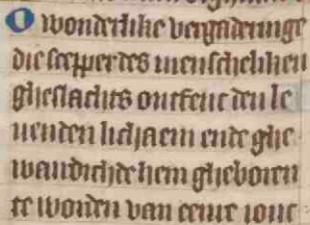 O wonderlike vergaderinge
die scepper des menschelijken
gheslachts ontfenc den le
uenden lichaem ende ghe
waerdichde hem gheboren
te worden van eenre ionc